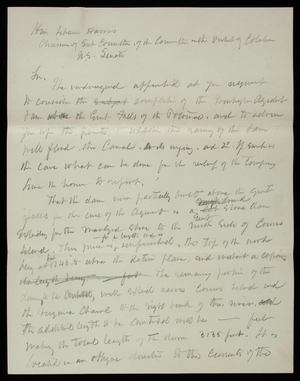 Hon Isham Harris
Chairman of Sub Committee of the Committee on the District of Columbia
U.S. Senate
Sir,
The undersigned appointed at your request
to consider the complaint of the
the Great Falls of the Potomac, and to advise
you upon the points whether the raising of the dam
will flood the Canal and 2d If such is
the case what can be done for the relief of the Company
have the honor to report.
That the dam now partially built above the Great
Falls for the use of the Aqueduct is a
from the Maryland Shore to the North side of Conns
Island. This is unfinished, the top of the work
being at 148 ft above the datum plane, and
The remaining portion of the
dam, to be will extend across Conns Island and
the Virginia Channel to the right bank of the river, and
the additional length to be constructed will be feet
making the total length of the dam feet. It is
located in an oblique direction to the current of the